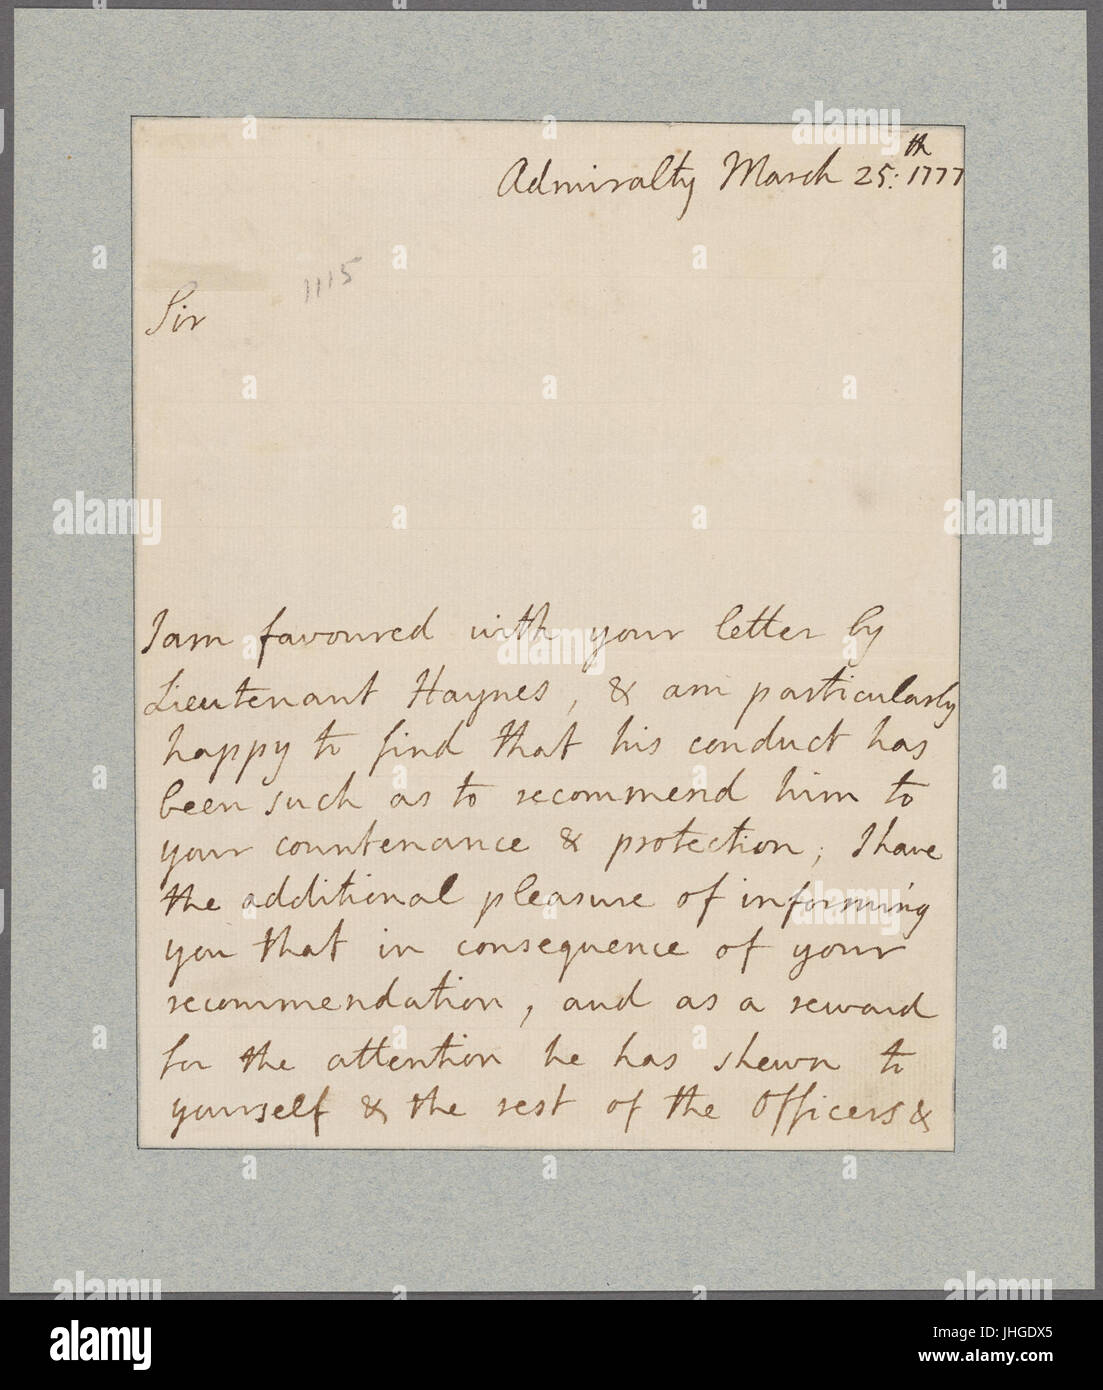 Admiralty March 25:th 1777
1115
Sir
I am favoured with your letter by
Lieutenant Haynes, & am particularly
happy to find that his conduct has
been such as to recommend him to
your countenance & protection; I have
the additional pleasure of informing
you that in consequence of your
recommendation, and as a reward
for the attention he has shewn to
yourself & the rest of the Officers &
alamy
Image ID: JHGDX5
www.alamy.com